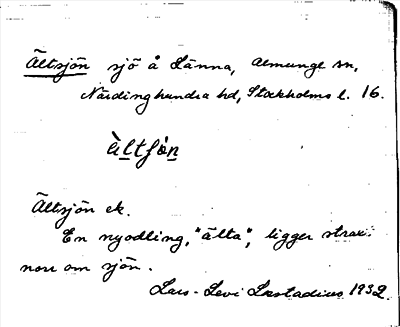 Ältsjön sjö å Länna, Almunge sn,
Närdinghundra hd, Stockholms l. 16.
Ältsjön ek.
En nyodling, "älta", ligger strax
norr om sjön.
Lars-Levi Læstadius 1932